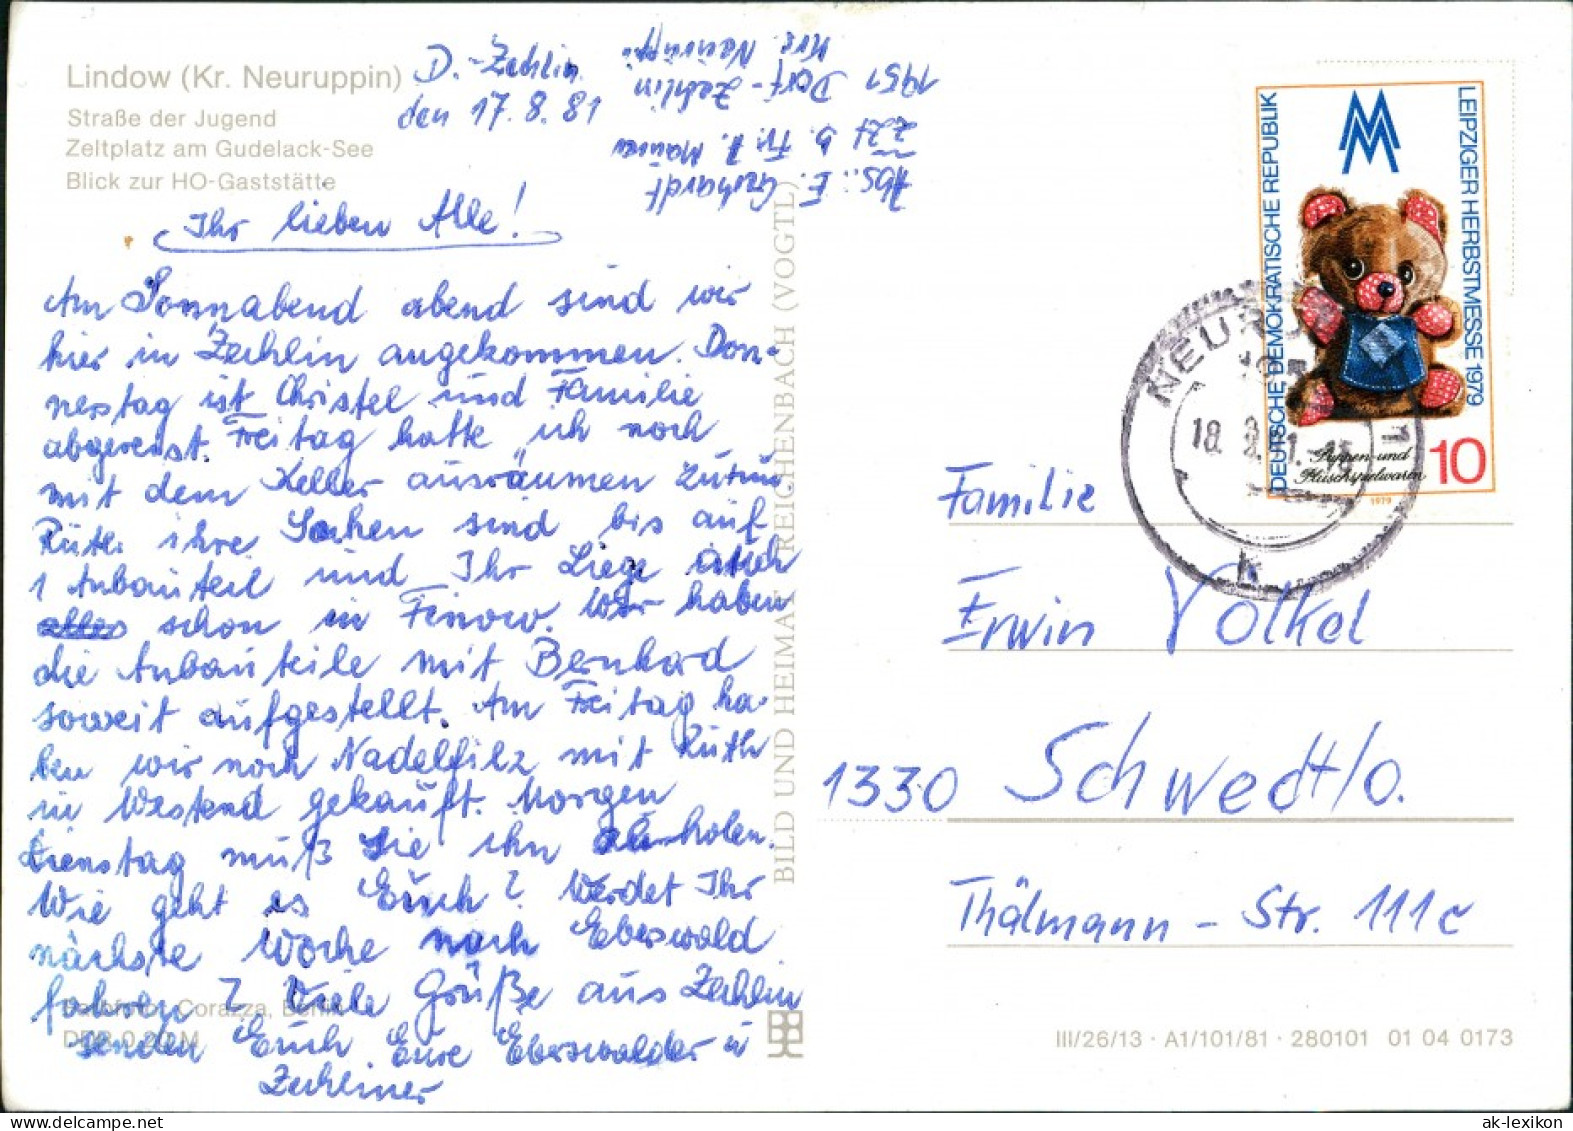 Lindow (Kr. Neuruppin)
Straße der Jugend
Zeltplatz am Gudelack-See
Blick zur HO-Gaststätte
D.-Zechlin
den 17.8.81
Abs.: E.
z. Zt. b. Fr.
1951 Dorf-Zechlin
Krs. Neuruppin
Ihr lieben Alle!
Am Sonnabend abend sind wir
hier in Zechlin angekommen. Don-
nerstag ist Christel und Familie
abgereist. Freitag hatte ich noch
mit dem Keller ausräumen zutun
Ruth ihre Sachen sind bis auf
1 Anbauteil und Ihr Liege auch
schon in Finow. Wir haben
die Anbauteile mit Bernhard
soweit aufgestellt. Am Freitag ha-
ben wir noch Nadelfilz mit Ruth
in Westend gekauft. Morgen
Dienstag muß Sie ihn holen.
Wie geht es Euch? Werdet Ihr
nächste Woche nach Eberswald
fahren? Viele Grüße aus Zechlin
senden Euch Eure Eberswalder u
Zechliner
Corazza, Berlin
DDR 0,20 M
BILD UND HEIMAT REICHENBACH (VOGTL)
DEUTSCHE DEMOKRATISCHE REPUBLIK
LEIPZIGER HERBSTMESSE 1979
Puppen und
Plüschspielwaren
10
1979
NEURU
18. 8. 1.-15
k
Familie
Erwin Volkel
1330 Schwedt/O.
Thälmann-Str. 111c
III/26/13 · A1/101/81 · 280101 01 04 0173
ak-lexikon